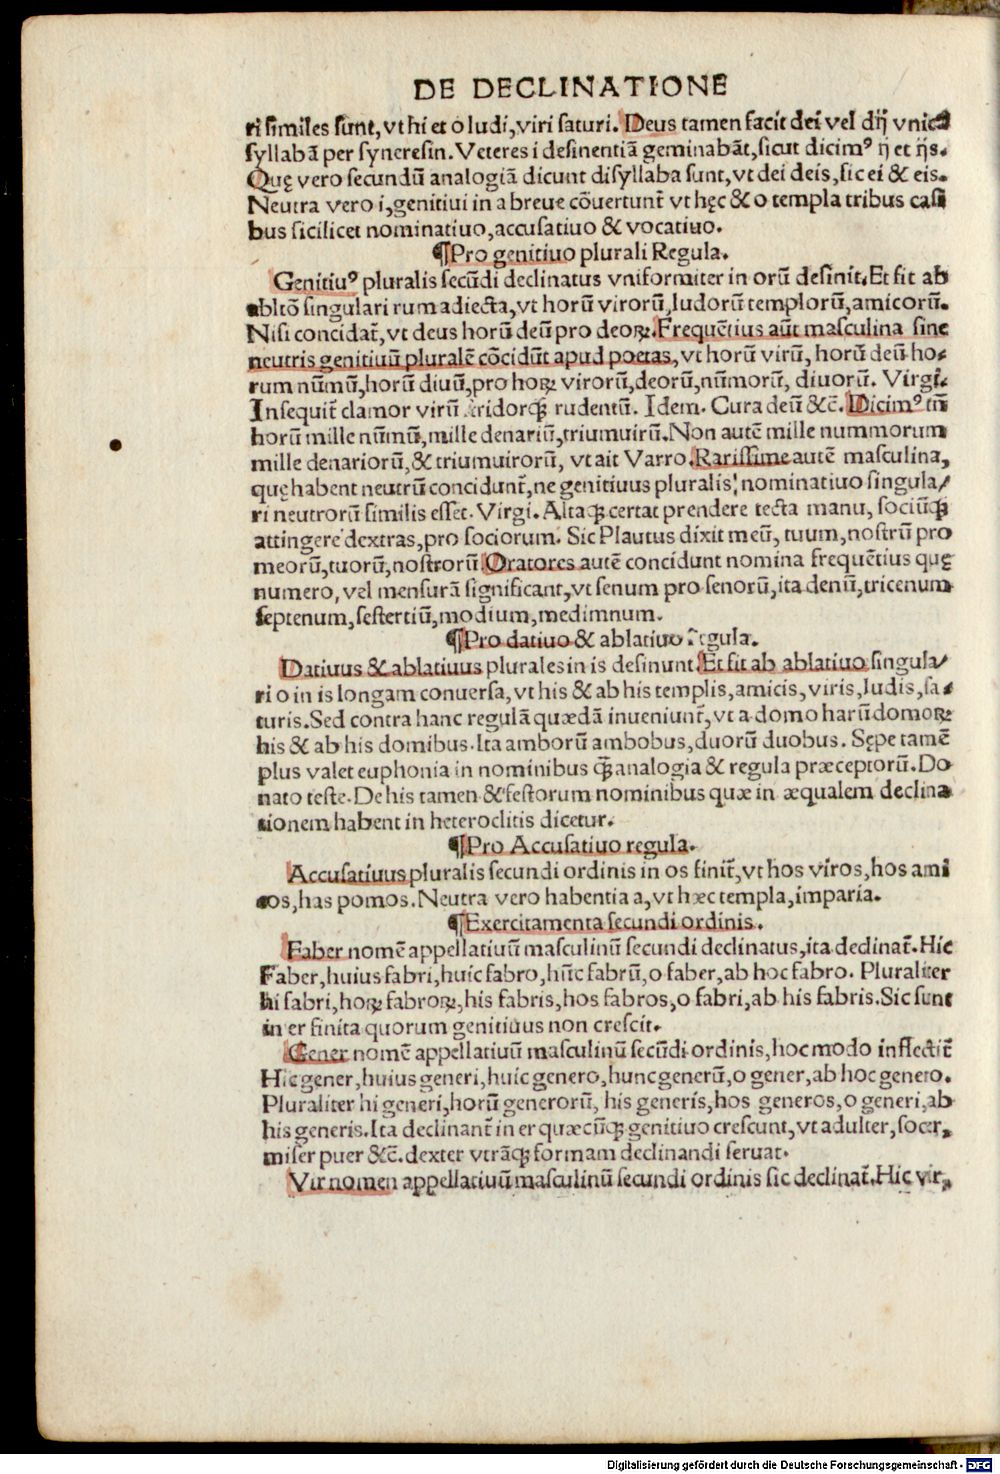 DE DECLINATIONE
ri similes sunt, vt hi et o ludi, viri saturi. Deus tamen facit dei vel dij vnica
syllabã per syneresin. Veteres i desinentiã geminabãt, sicut dicimꝰ ij et ijs.
Quę vero secundũ analogiã dicunt disyllaba sunt, vt dei deis, sic ei & eis.
Neutra vero i, genitiui in a breue cõuertunt᷑ vt hęc & o templa tribus casi
bus sicilicet nominatiuo, accusatiuo & vocatiuo.
¶Pro genitiuo plurali Regula.
Genitiuꝰ pluralis secũdi declinatus vniformiter in orũ desinit. Et fit ab
abltõ singulari rum adiecta, vt horũ virorũ, ludorũ templorũ, amicorũ.
Nisi concidat᷑, vt deus horũ deũ pro deoꝝ. Frequẽtius aũt masculina sine
neutris genitiuũ pluralẽ cõcidũt apud poetas, vt horũ virũ, horũ deũ ho-
rum nũmũ, horũ diuũ, pro hoꝝ virorũ, deorũ, nũmorũ, diuorũ. Virgi.
Insequit᷑ clamor virũ stridorqꝫ rudentũ. Idem. Cura deũ &c̃. Dicimꝰ tñ
horũ mille nũmũ, mille denariũ, triumuirũ. Non autẽ mille nummorum
mille denariorũ, & triumuirorũ, vt ait Varro. Rarissime autẽ masculina,
quę habent neutrũ concidunt᷑, ne genitiuus pluralis, nominatiuo singula/
ri neutrorũ similis esset. Virgi. Altaqꝫ certat prendere tecta manu, sociũqꝫ
attingere dextras, pro sociorum. Sic Plautus dixit meũ, tuum, nostrũ pro
meorũ, tuorũ, nostrorũ Oratores autẽ concidunt nomina frequẽtius quę
numero, vel mensurã significant, vt senum pro senorũ, ita denũ, tricenum
septenum, sestertiũ, modium, medimnum.
¶Pro datiuo & ablatiuo regula.
Datiuus & ablatiuus plurales in is desinunt. Et fit ab ablatiuo singula/
ri o in is longam conuersa, vt his & ab his templis, amicis, viris, ludis, sa-
turis. Sed contra hanc regulã quædã inueniunt᷑, vt a domo harũ domoꝝ
his & ab his domibus. Ita amborũ ambobus, duorũ duobus. Sępe tamẽ
plus valet euphonia in nominibus qꝫ̃ analogia & regula præceptorũ. Do
nato teste. De his tamen & festorum nominibus quæ in æqualem declina
tionem habent in heteroclitis dicetur.
¶Pro Accusatiuo regula.
Accusatiuus pluralis secundi ordinis in os finit᷑, vt hos viros, hos ami
cos, has pomos. Neutra vero habentia a, vt hæc templa, imparia.
¶Exercitamenta secundi ordinis.
Faber nomẽ appellatiuũ masculinũ secundi declinatus, ita declinat᷑. Hic
Faber, huius fabri, huic fabro, hũc fabrũ, o faber, ab hoc fabro. Pluraliter
hi fabri, hoꝝ fabroꝝ, his fabris, hos fabros, o fabri, ab his fabris. Sic sunt
in er finita quorum genitiuus non crescit.
Gener nomẽ appellatiuũ masculinũ secũdi ordinis, hoc modo inflectit᷑
Hic gener, huius generi, huic genero, hunc generũ, o gener, ab hoc genero.
Pluraliter hi generi, horũ generorũ, his generis, hos generos, o generi, ab
his generis. Ita declinant᷑ in er quæcũqꝫ genitiuo crescunt, vt adulter, socer,
miser puer &c̃. dexter vtrãqꝫ formam declinandi seruat.
Vir nomen appellatiuũ masculinũ secundi ordinis sic declinat᷑. Hic vir,
Digitalisierung gefördert durch die Deutsche Forschungsgemeinschaft - DFG